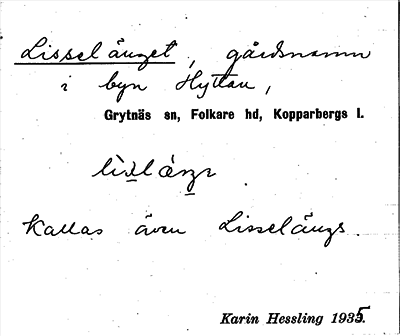 Lisselänget, gårdsnamn
i byn Hyttan,
Grytnäs sn, Folkare hd, Kopparbergs l.
Kallas även Lisselängs.
Karin Hessling 1935.